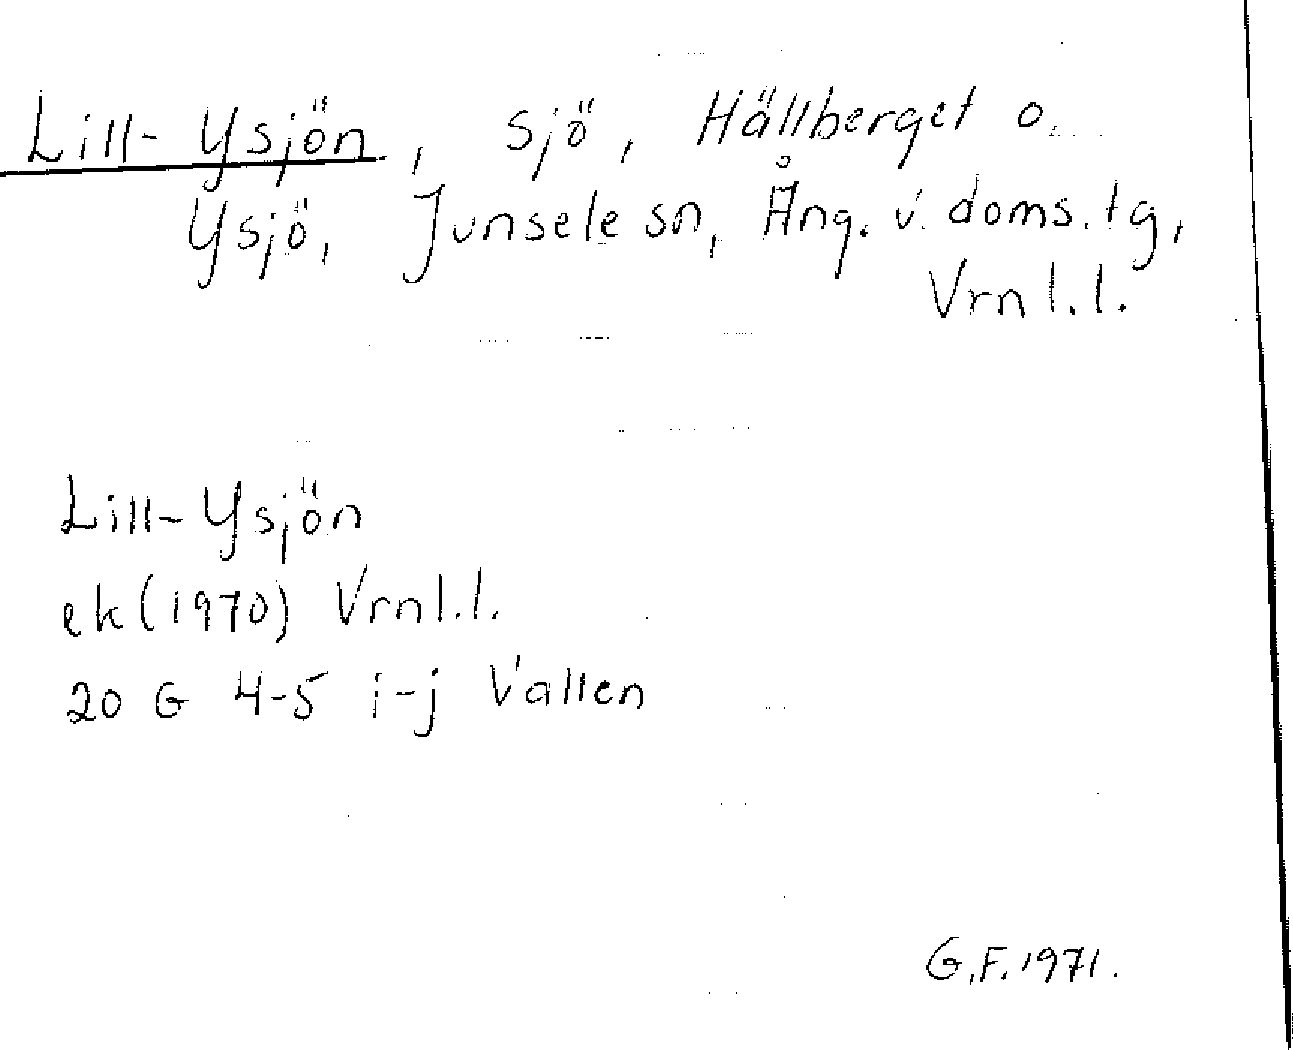 Lill-Ysjön, sjö, Hällberget o.
Ysjö, Junsele sn, Ång. v. doms. tg,
Vrnl.l.
Lill-Ysjön
ek(1970) Vrnl.l.
20 G 4-5 i-j Vallen
G.F. 1971.